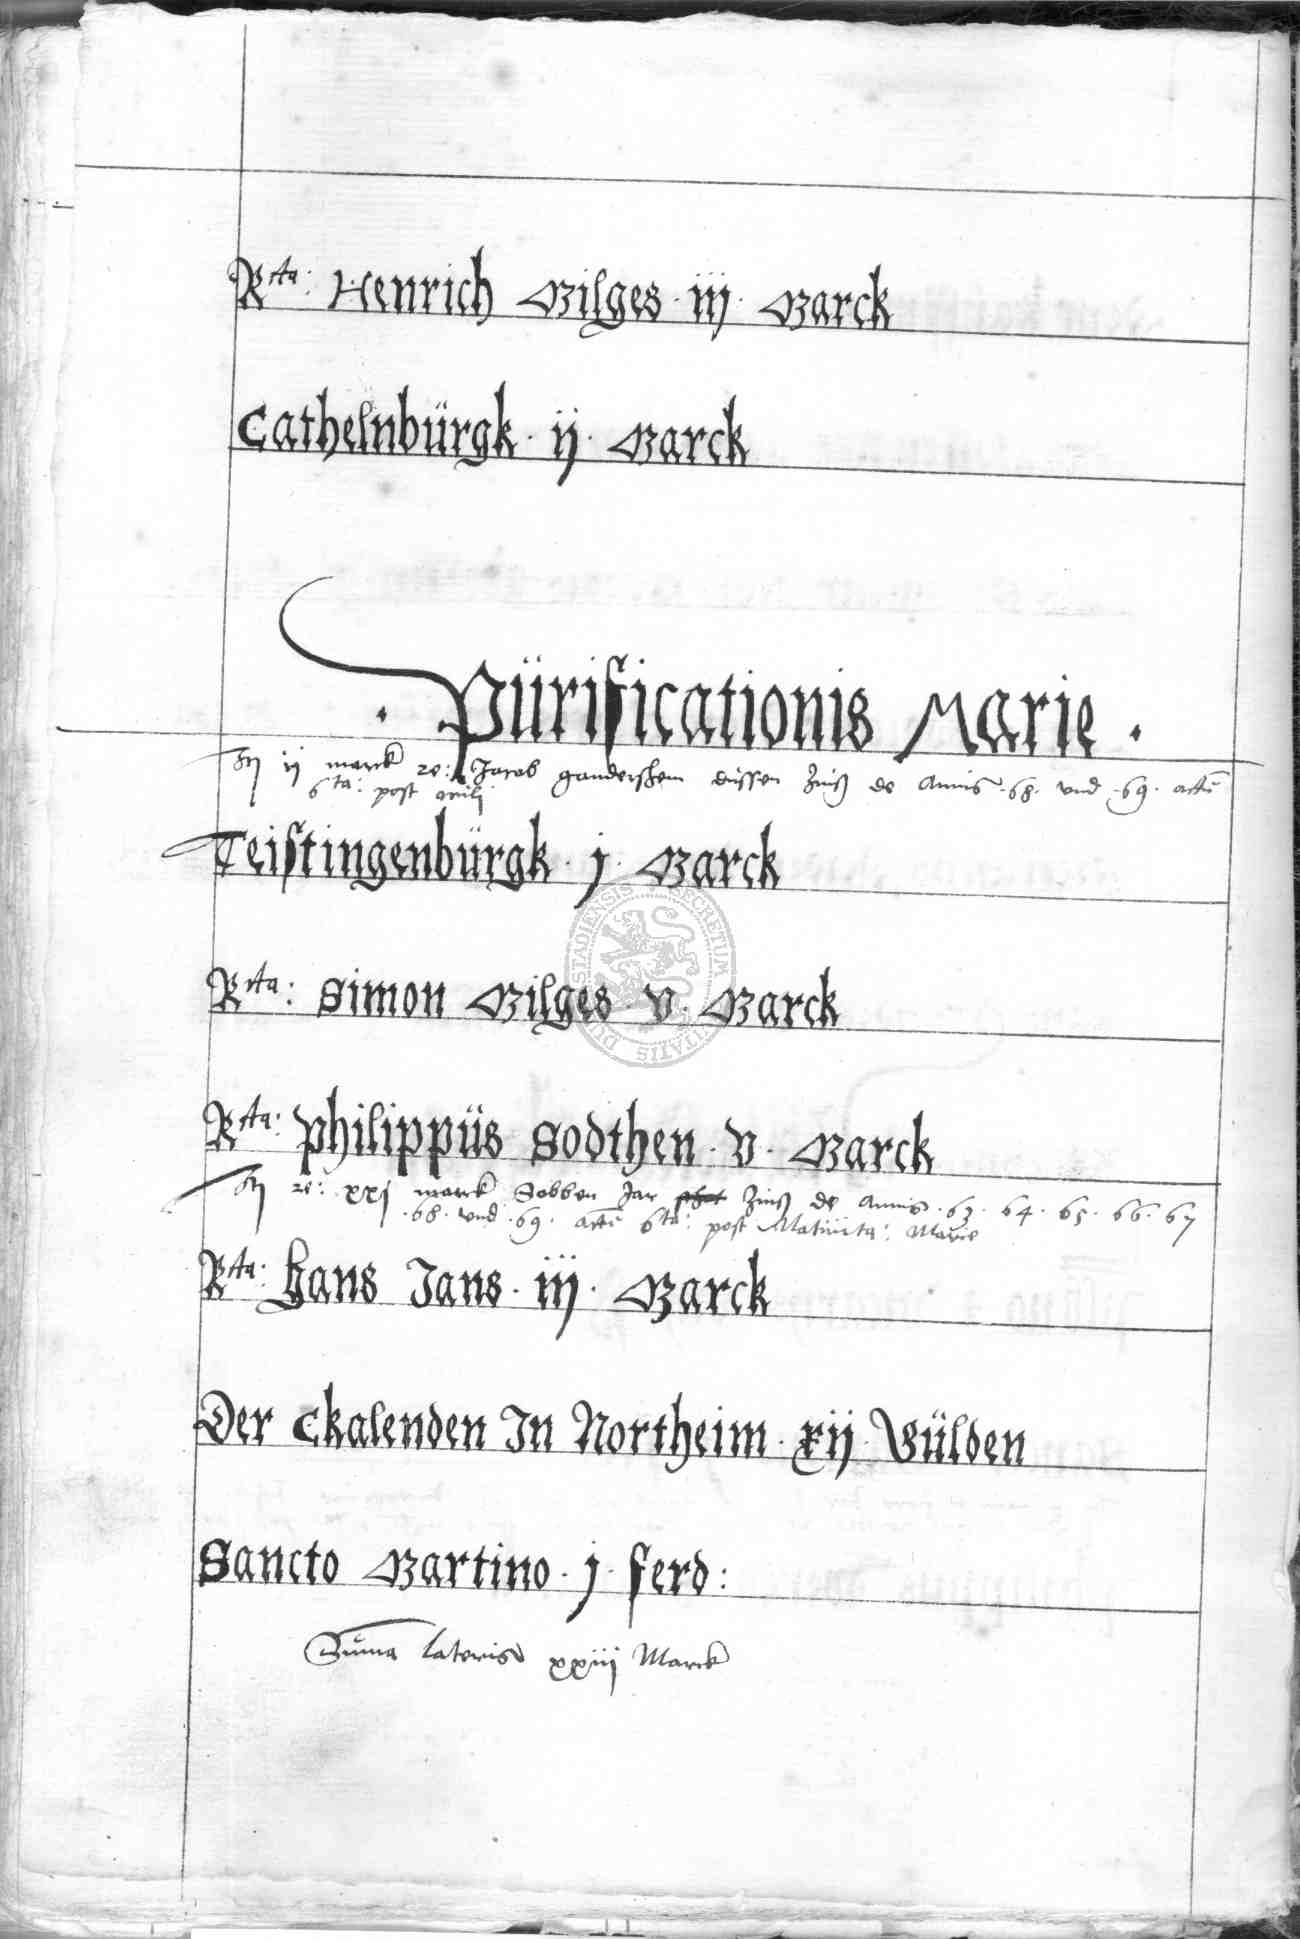 Rta: Henrich Gilges · iij · Marck
Cathelnbürgk · ij · Marck
· Pürificationis Marie ·
Itz ij marck re: Jacob gandershem dussen Zinß de Annis · 68 · vnd · 69 · actu
6ta: post
Teistingenbürgk · j · Marck
Rta: Simon Gilges v · Marck
Rta: Philippüs Sodthen · v · Marck
Itz re: xxj marck Sobben Jar Zinß de Annis · 63 · 64 · 65 · 66 · 67
· 68 · vnd · 69 · actu 6ta: post Natiuita: Marie
Rta: Hans Jans · iij · Marck
Der Ckalenden In Northeim · xij · Gülden
Sancto Martino · j · ferd:
Suma lateris xxiij Marck